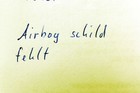 Airbog schild
fehlt